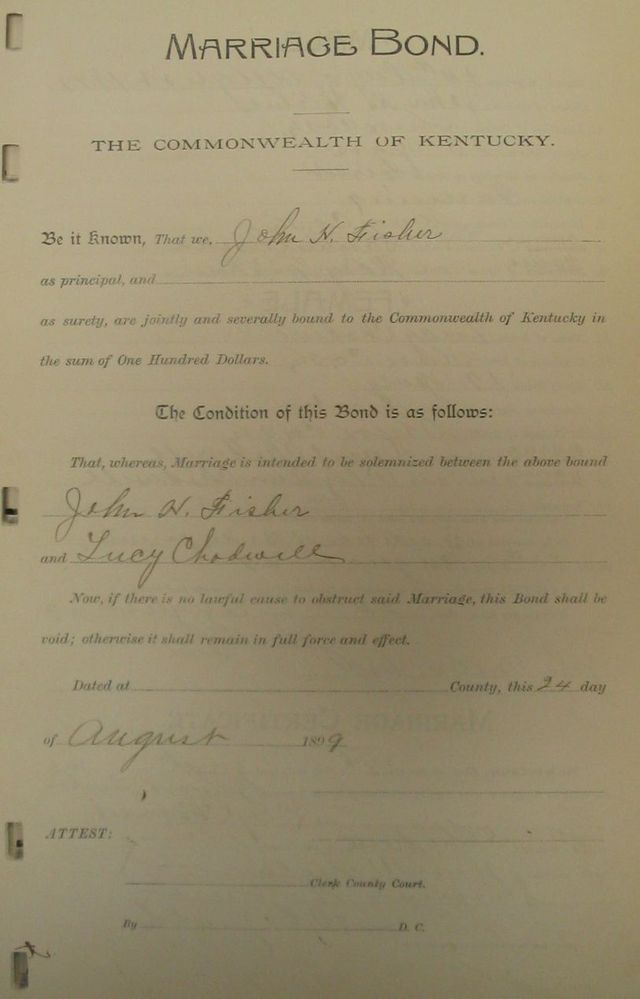 MARRIAGE BOND.
THE COMMONWEALTH OF KENTUCKY.
Be it Known, That we, John H. Fisher
as principal, and
as surety, are jointly and severally bound to the Commonwealth of Kentucky in
the sum of One Hundred Dollars.
The Condition of this Bond is as follows:
That, whereas, Marriage is intended to be solemnized between the above bound
John H. Fisher
and Lucy Chadwell
Now, if there is no lawful cause to obstruct said Marriage, this Bond shall be
void; otherwise it shall remain in full force and effect.
Dated at County, this 24 day
of August 1899
ATTEST:
Clerk County Court.
By D. C.